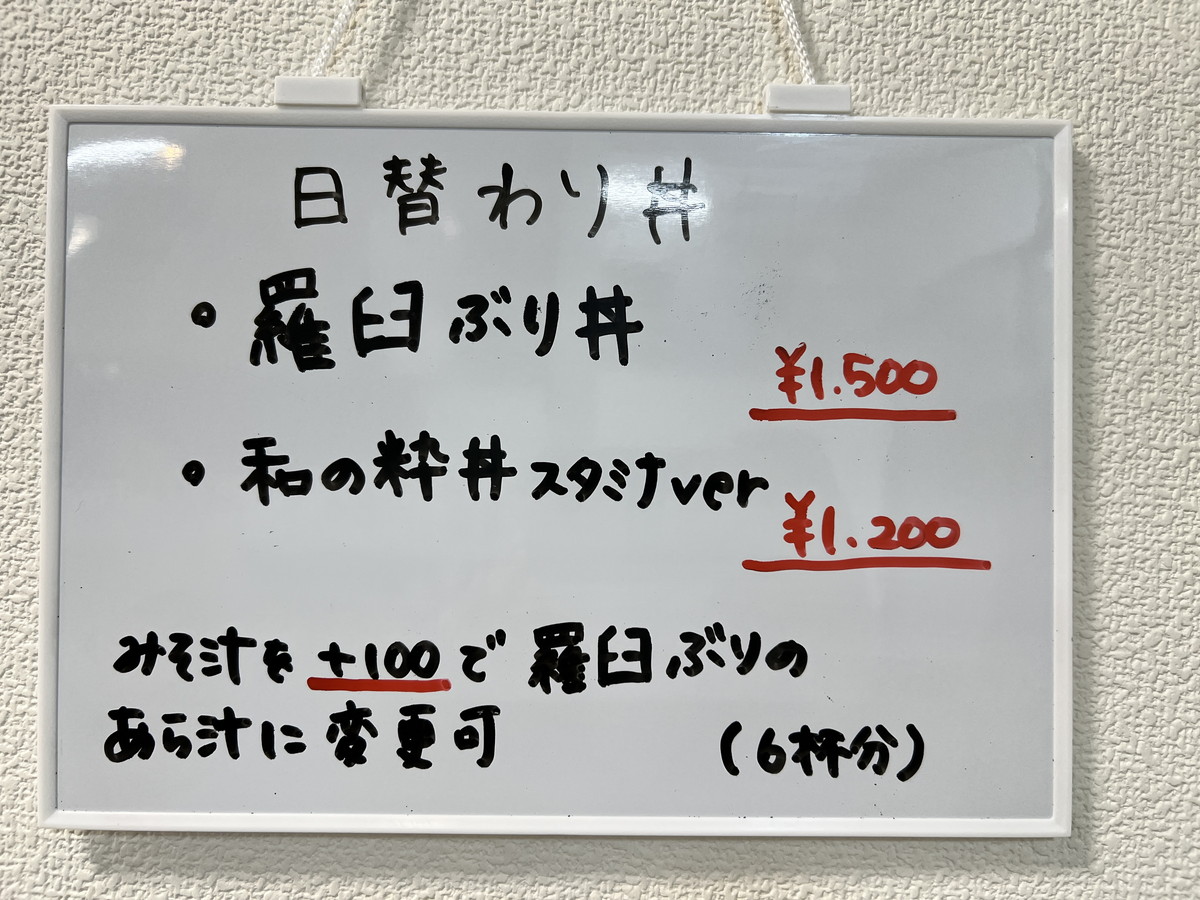 日替わり丼
・羅臼ぶり丼
¥1.500
・和の粋丼スタミナver
¥1.200
みそ汁を+100で羅臼ぶりの
あら汁に変更可 (6杯分)